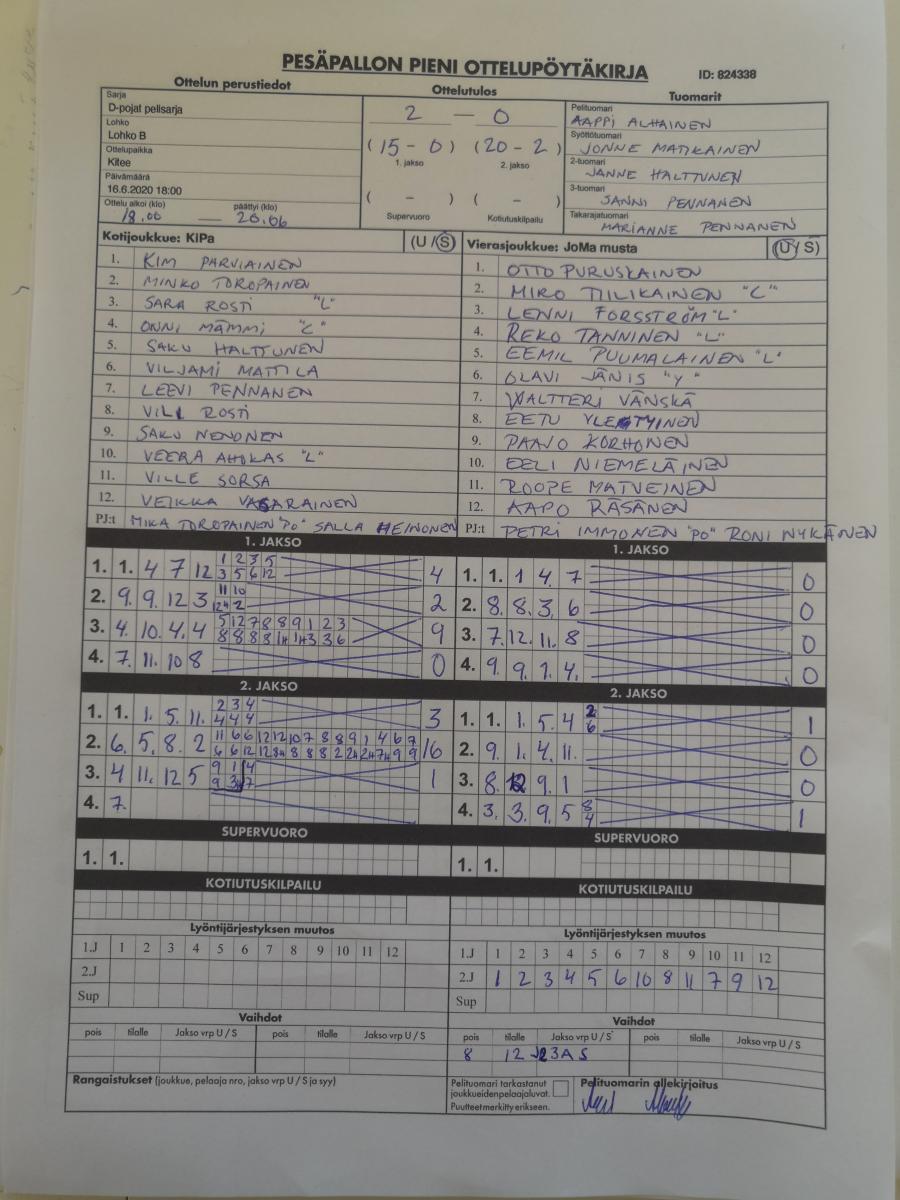 PESÄPALLON PIENI OTTELUPÖYTÄKIRJA ID: 824338
Ottelun perustiedot
Sarja
D-pojat pelisarja
Lohko
Lohko B
Ottelupaikka
Kitee
Päivämäärä
16.6.2020 18:00
Ottelu alkoi (klo) päättyi (klo)
18.00 — 20.06
Ottelutulos
2 — 0
(15 - 0) (20 - 2)
1. jakso 2. jakso
( - ) ( - )
Supervuoro Kotiutuskilpailu
Tuomarit
Pelituomari
AAPPI ALHAINEN
Syöttötuomari
JONNE MATIKAINEN
2-tuomari
JANNE HALTTUNEN
3-tuomari
SANNI PENNANEN
Takarajatuomari
MARIANNE PENNANEN
Kotijoukkue: KiPa (U / S)
1. KIM PARVIAINEN
2. MINKO TOROPAINEN
3. SARA ROSTI "L"
4. ONNI MÄMMI "C"
5. SAKU HALTTUNEN
6. VILJAMI MATTILA
7. LEEVI PENNANEN
8. VILI ROSTI
9. SAKU NENONEN
10. VEERA AHOKAS "L"
11. VILLE SORSA
12. VEIKKA VASARAINEN
PJ:t MIKA TOROPAINEN "PO" SALLA HEINONEN
Vierasjoukkue: JoMa musta (U / S)
1. OTTO PURUSKAINEN
2. MIRO TIILIKAINEN "C"
3. LENNI FORSSTRÖM "L"
4. REKO TANNINEN "L"
5. EEMIL PUUMALAINEN "L"
6. OLAVI JÄNIS "Y"
7. WALTTERI VÄNSKÄ
8. EETU YLETYINEN
9. PAAVO KORHONEN
10. EELI NIEMELÄINEN
11. ROOPE MATVEINEN
12. AAPO RÄSÄNEN
PJ:t PETRI IMMONEN "PO" RONI NYKÄNEN
1. JAKSO
1. 1. 4 7 12 1 2 3 5 4
3 5 6 12
2. 9. 9. 12 3 11 10 2
12 2
3. 4. 10. 4. 4 5 12 7 8 8 9 1 2 3 9
4. 7. 11. 10 8 0
1. JAKSO
1. 1. 1 4. 7 0
2. 8. 8. 3. 6 0
3. 7. 12. 11. 8 0
4. 9. 9. 1. 4. 0
2. JAKSO
1. 1. 1. 5. 11. 2 3 4 3
4 4 4
2. 6. 5. 8. 2 11 6 6 12 12 10 7 8 8 9 1 4 6 7 16
3. 4 11. 12 5 1
4. 7.
2. JAKSO
1. 1. 1. 5. 4 2 1
6
2. 9. 1. 4. 11. 0
3. 8. 12 9. 1 0
4. 3. 3. 9. 5 8 1
4
SUPERVUORO
1. 1.
SUPERVUORO
1. 1.
KOTIUTUSKILPAILU
KOTIUTUSKILPAILU
Lyöntijärjestyksen muutos
1.J 1 2 3 4 5 6 7 8 9 10 11 12
2.J
Sup
Lyöntijärjestyksen muutos
1.J 1 2 3 4 5 6 7 8 9 10 11 12
2.J 1 2 3 4 5 6 10 8 11 7 9 12
Sup
Vaihdot
pois tilalle Jakso vrp U / S pois tilalle Jakso vrp U / S
Vaihdot
pois tilalle Jakso vrp U / S pois tilalle Jakso vrp U / S
8 12 23A S
Rangaistukset (joukkue, pelaaja nro, jakso vrp U / S ja syy)
Pelituomari tarkastanut
joukkueidenpelaajaluvat.
Puutteetmerkitty erikseen.
Pelituomarin allekirjoitus